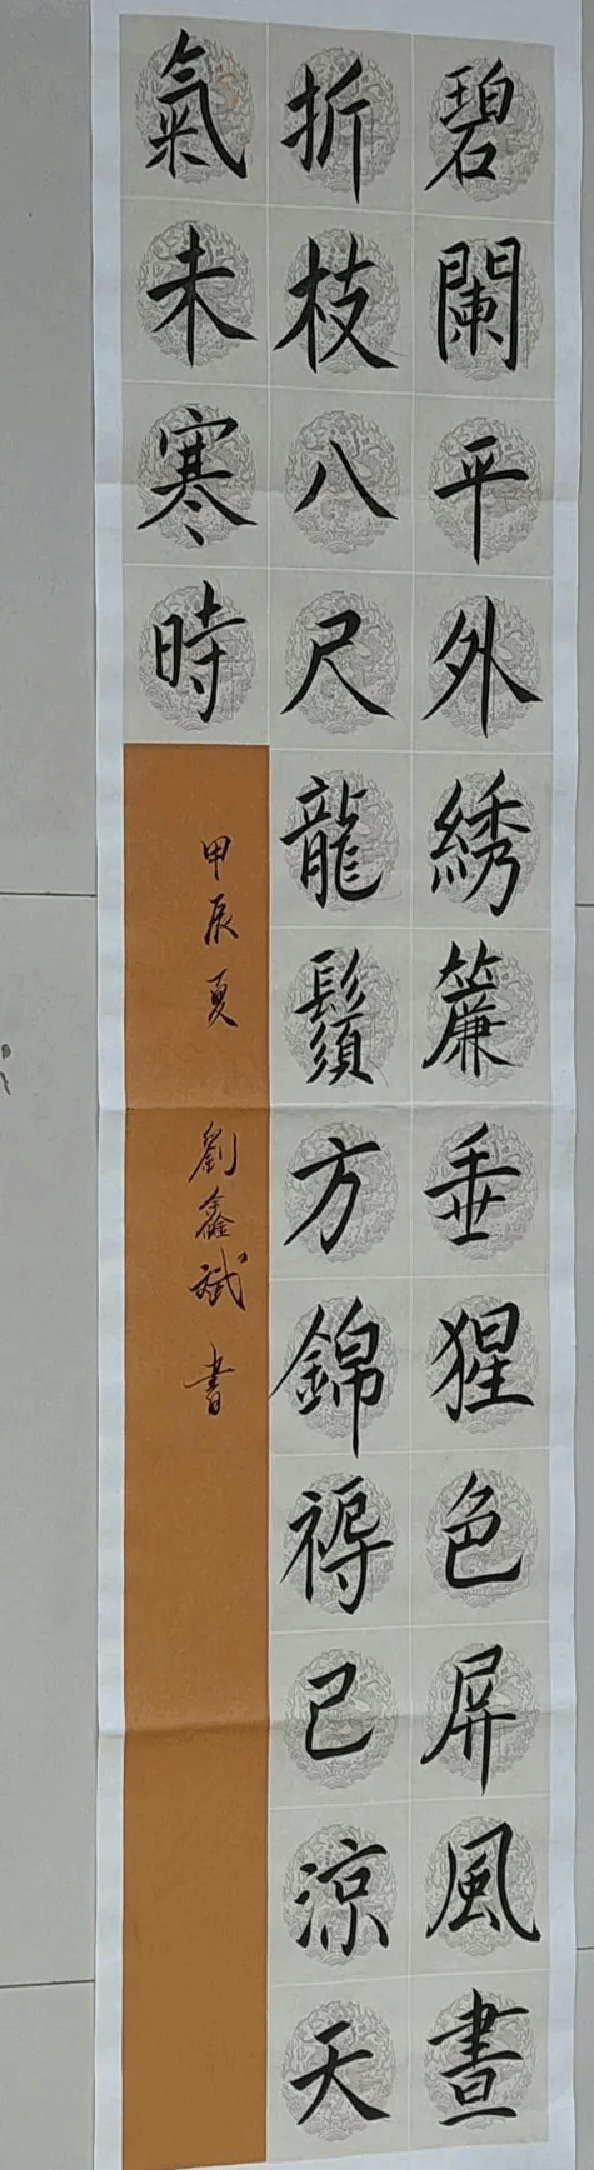 碧闌平外綉簾垂猩色屏風晝
折枝八尺龍鬚方錦褥已涼天
氣未寒時
甲辰夏 劉鑫斌書